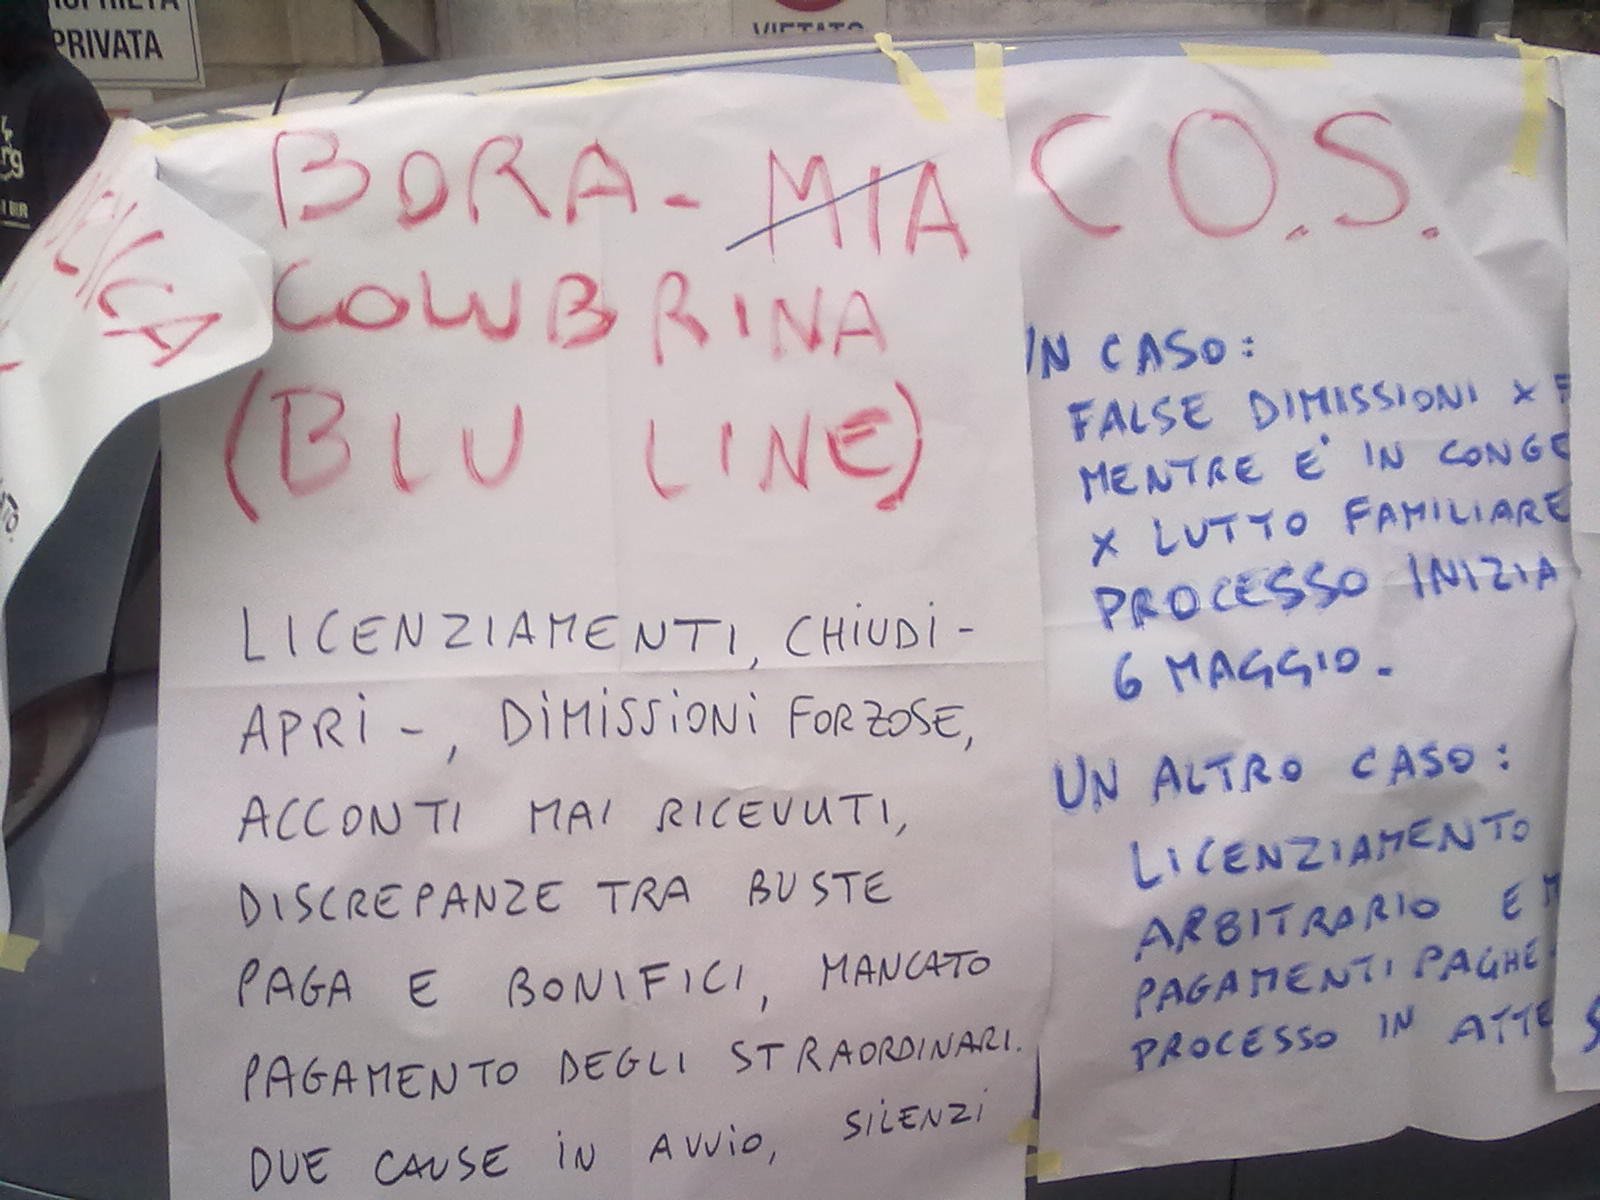 PRIVATA
VIETATO
BORA - MIA
COLUBRINA
(BLU LINE)
LICENZIAMENTI, CHIUDI -
APRI - , DIMISSIONI FORZOSE,
ACCONTI MAI RICEVUTI,
DISCREPANZE TRA BUSTE
PAGA E BONIFICI, MANCATO
PAGAMENTO DEGLI STRAORDINARI.
DUE CAUSE IN AVVIO, SILENZI
C.O.S.
UN CASO:
FALSE DIMISSIONI X F
MENTRE E' IN CONGE
X LUTTO FAMILIARE
PROCESSO INIZIA
6 MAGGIO.
UN ALTRO CASO:
LICENZIAMENTO
ARBITRARIO E M
PAGAMENTI PAGHE.
PROCESSO IN ATTE